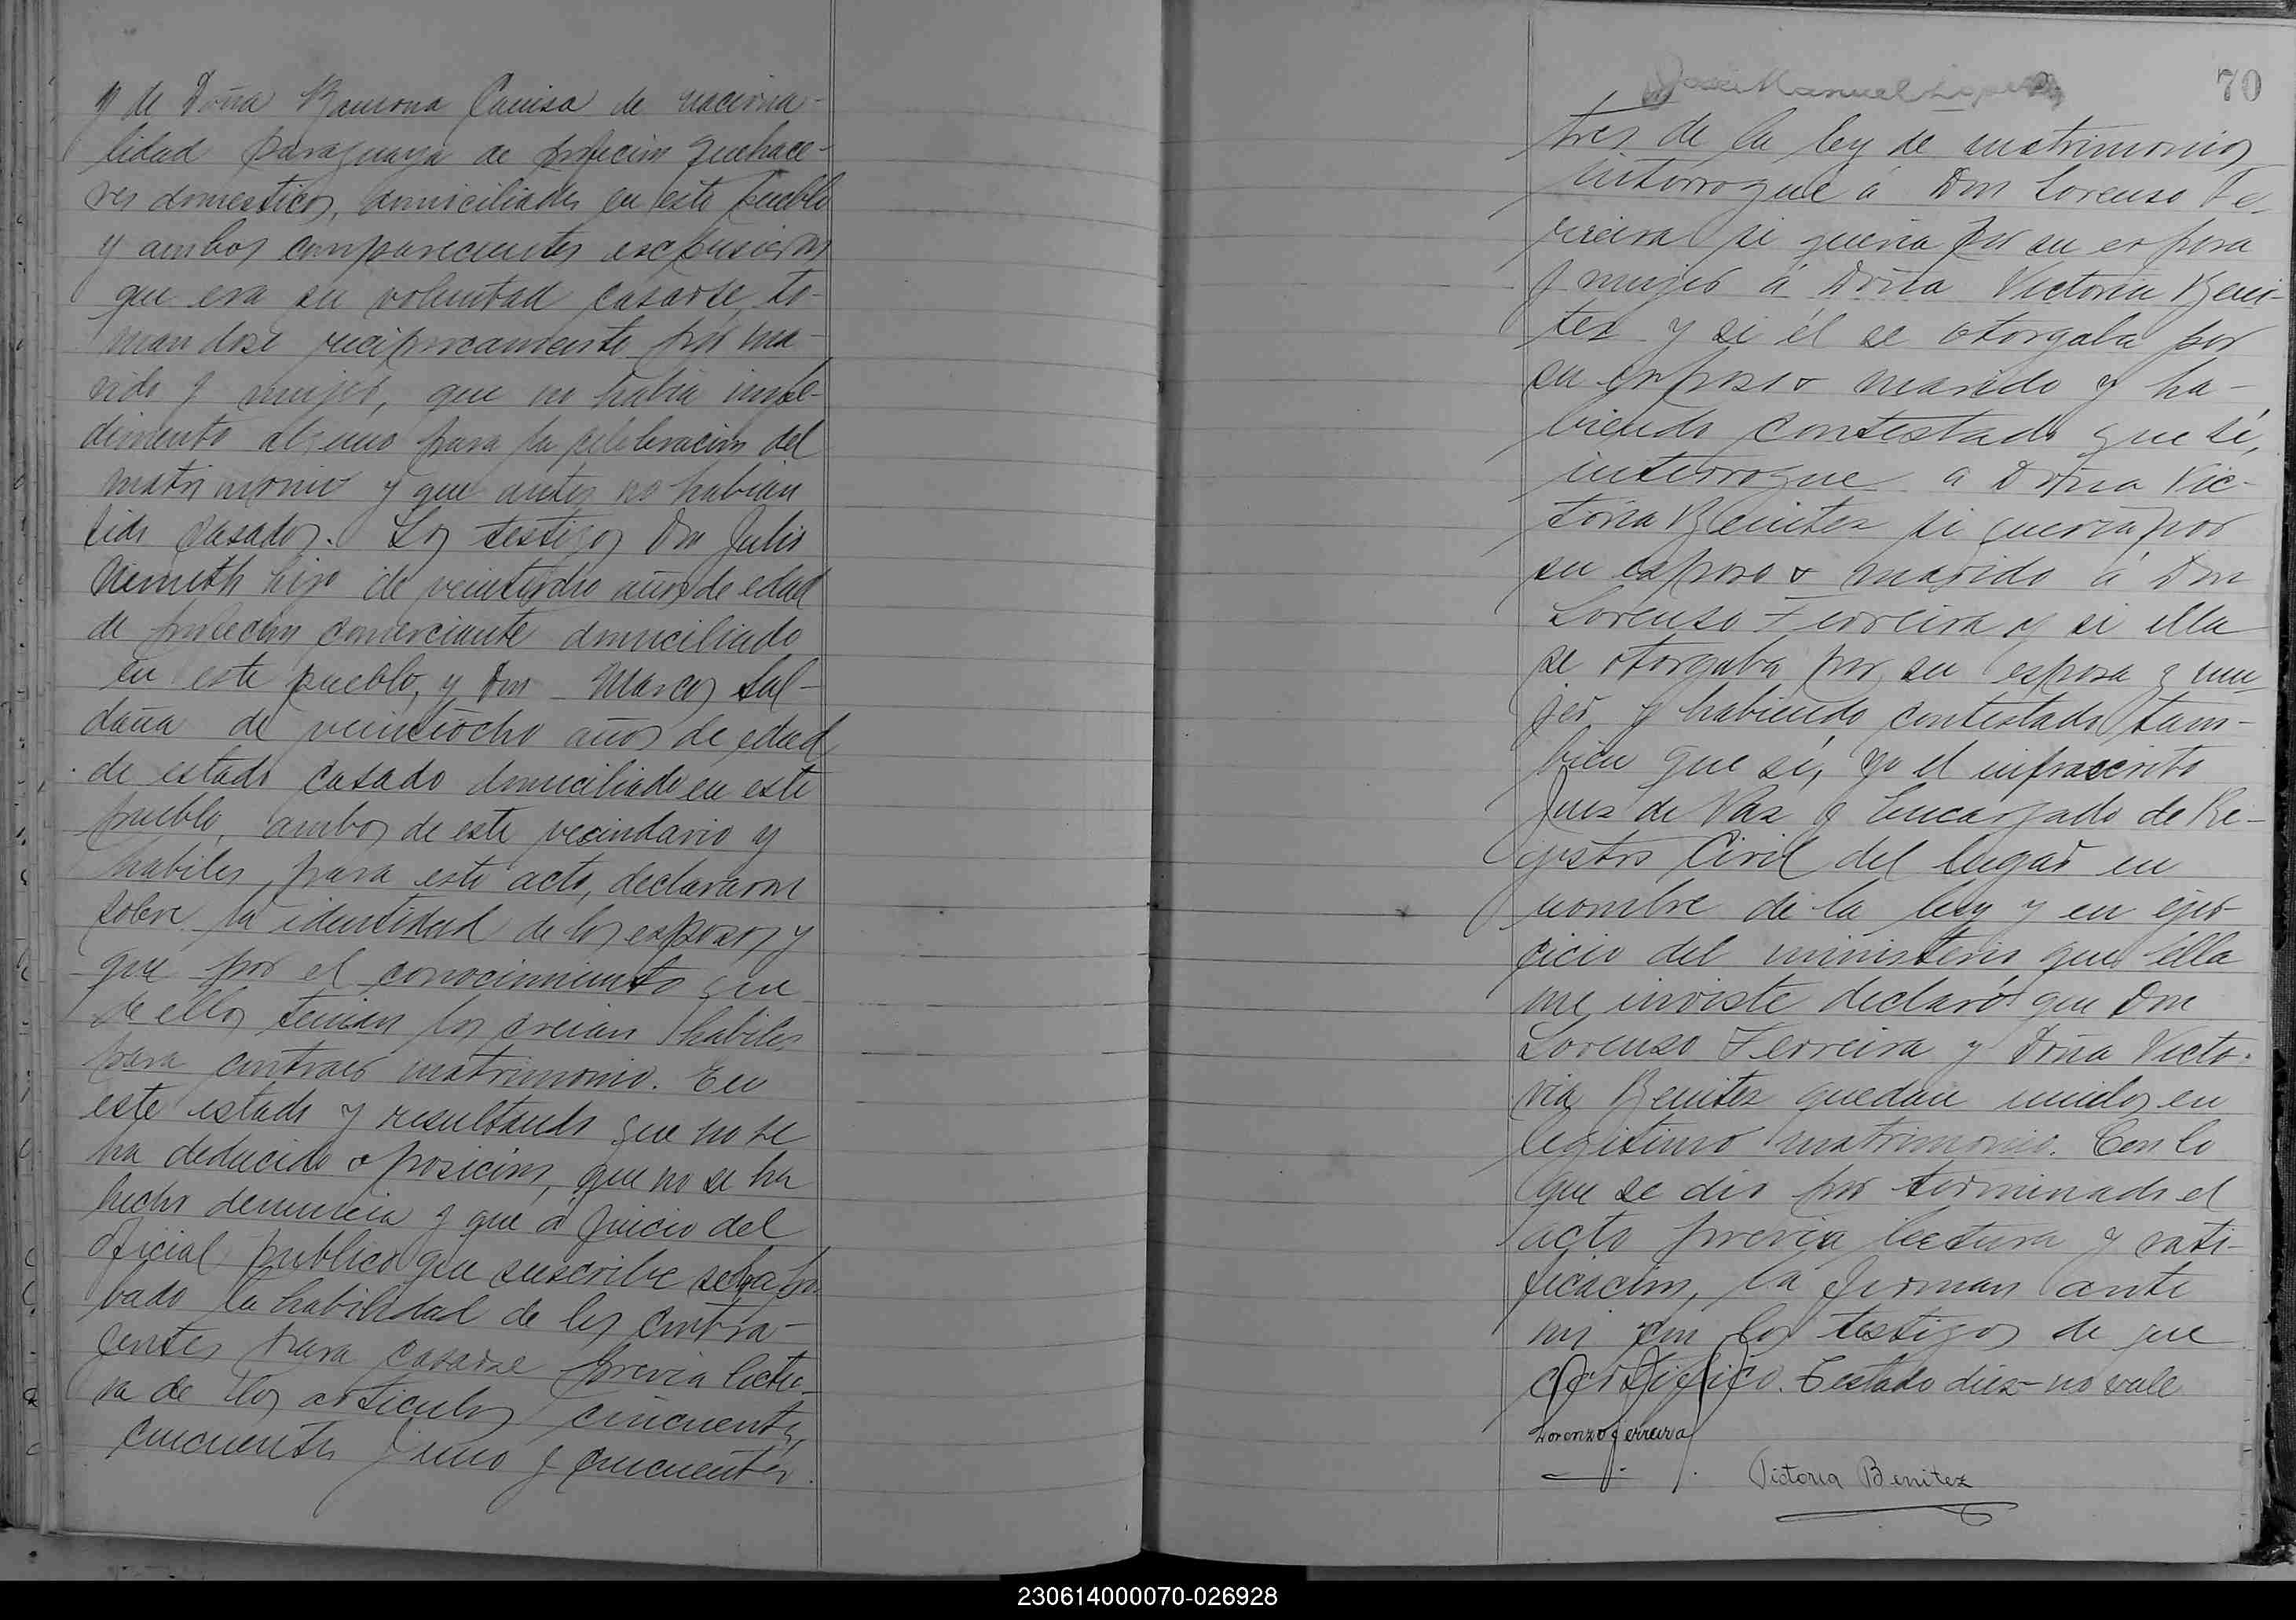 y de Doña Ramona Canisa de naciona-
lidad paraguaya de profecion quehace-
res domesticos, domiciliados en este pueblo
y ambos comparecientes expusieron
que era su voluntad casarse, to-
mandose reciprocamente por ma-
rido y mujer, que no habia impe-
dimento alguno para la celebracion del
matrimonio y que antes no habian
sido casados. Los testigos Don Julio
Nemeth hijo de veintiocho años de edad
de profecion comerciante domiciliado
en este pueblo, y Don Marcos Sal-
daña de veintiocho años de edad
de estado casado domiciliado en este
pueblo, ambos de este vecindario y
habiles para este acto, declararon
sobre la identidad de los esposos y
que por el conocimiento que
de ellos tenian los creian habiles
para contraer matrimonio. En
este estado y resultando que no se
ha deducido oposicion, que no se ha
hecho denuncia y que á juicio del
oficial publico que suscribe se ha pro-
bado la habilidad de los contra-
yentes para casarse previa lectu-
ra de los articulos cincuenta,
cincuenta y uno y cincuenta y
70
José Manuel Lopez
tres de la ley de matrimonios
interrogue á Don Lorenso Fe-
rreira si queria por su esposa
y mujer á Doña Victoria Beni-
tez y si él se otorgaba por
su esposo o marido y ha-
biendo contestado que sí,
interrogue a Doña Vic-
toria Benitez si queria por
su esposo o marido á Don
Lorenso Ferreira y si ella
se otorgaba por su esposa y mu-
jer y habiendo contestado tam-
bien que sí, yo el infrascrito
Juez de Paz y Encargado de Re-
gistro Civil del lugar en
nombre de la ley y en ejer-
cicio del ministerio que ella
me inviste declaró que Don
Lorenso Ferreira y Doña Victo-
ria Benitez quedan unidos en
legitimo matrimonio. Con lo
que se dio por terminado el
acto previa lectura y rati-
ficacion, la firman ante
mi con los testigos de que
certifico. Testado diez-no vale
Lorenzo Ferreira
Victoria Benitez
230614000070-026928